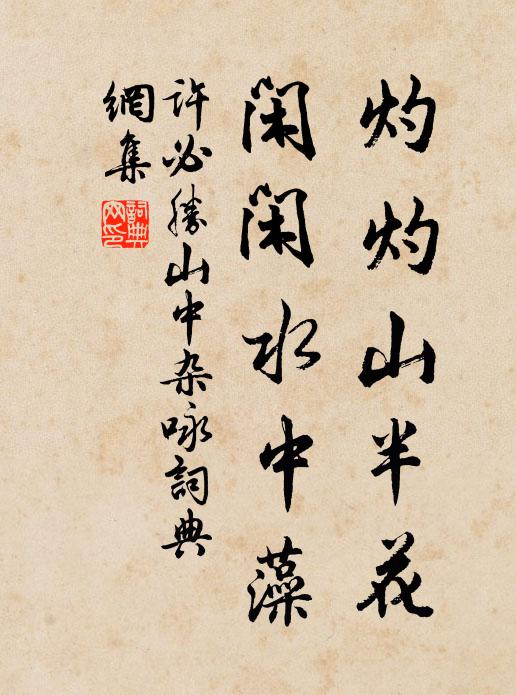 灼灼山半花
闲闲水中藻
许必胜山中杂咏詞典
網集
詞典
网印